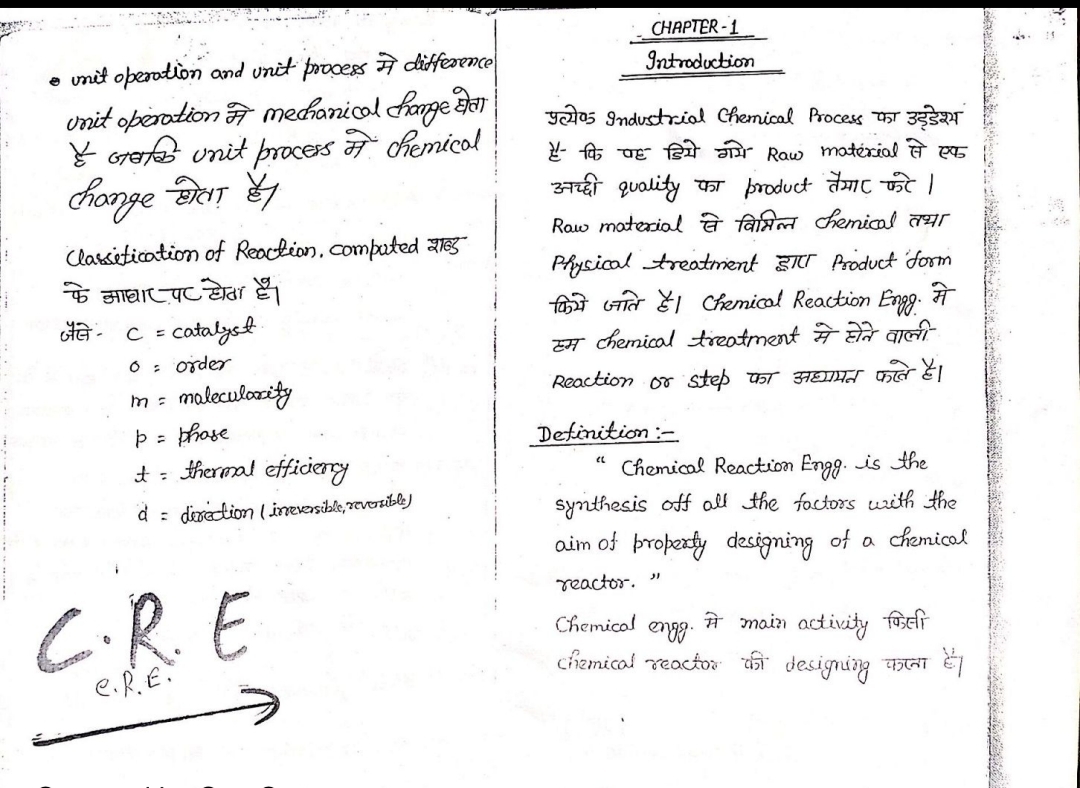 • unit operation and unit process मे difference
unit operation मे mechanical change होता
है जबकि unit process मे chemical
change होता है।
Classification of Reaction. computed शब्द
के आधार पर होता है।
जैसे - C = catalyst
o = order
m = malecularity
p = phase
t = thermal efficiency
d = direction (irreversible, reversible)
C.R.E
C.R.E.
CHAPTER-1
Introduction
प्रत्येक Industrial Chemical Process का उद्देश्य
है कि वह दिये गये Raw material से एक
अच्छी quality का product तैयार करे।
Raw material से विभिन्न chemical तथा
Physical treatment द्वारा Product form
किये जाते है। Chemical Reaction Engg. मे
हम chemical treatment मे होने वाली
Reaction or step का अध्ययन करते है।
Definition :-
" Chemical Reaction Engg. is the
synthesis off all the factors with the
aim of properly designing of a chemical
reactor. "
Chemical engg. मे main activity किसी
chemical reactor की designing करना है।